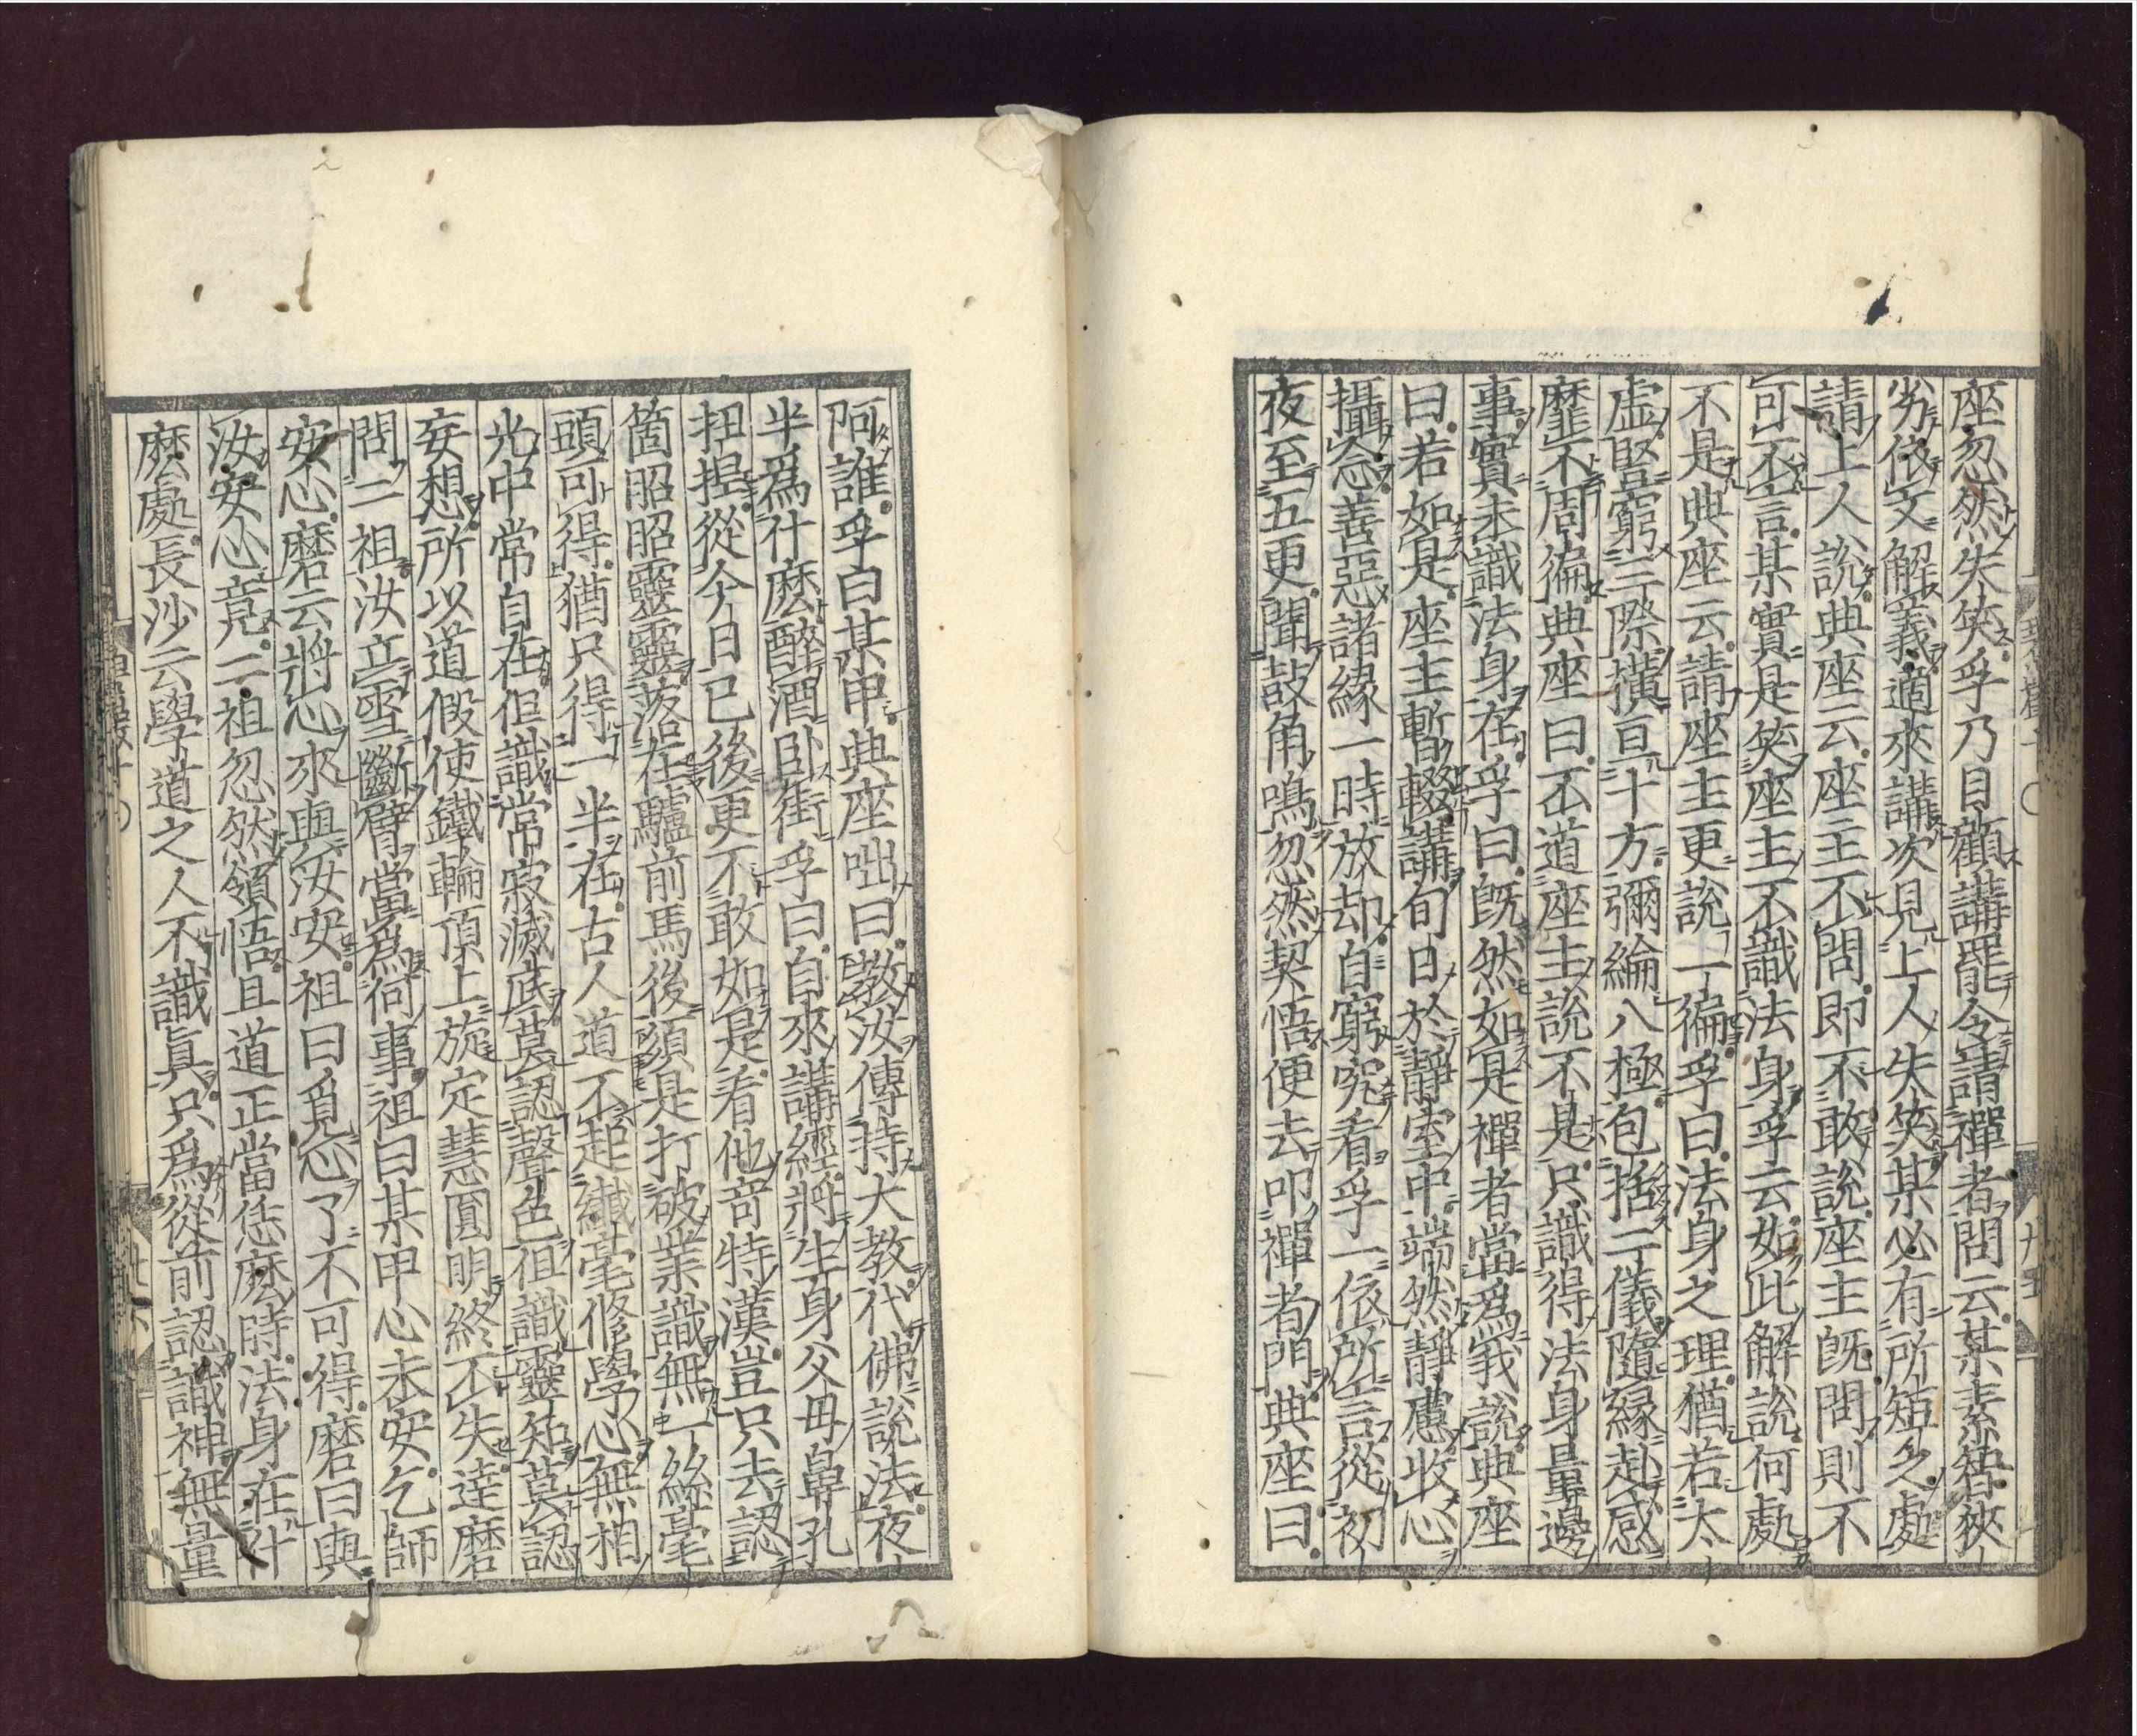 座忽然失笑孚乃目顧講罷令請禪者問云某素智狹
劣依文解義適來講次見上人失笑某必有所短乏處
請上人說典座云座主不問即不敢說座主旣問則不
可不言某實是笑座主不識法身孚云如此解說何處
不是典座云請座主更說一徧孚曰法身之理猶若太
虛豎窮三際橫亘十方彌綸八極包括二儀隨緣赴感
靡不周徧典座曰不道座主說不是只識得法身量邊
事實未識法身在孚曰旣然如是禪者當爲我說典座
曰若如是座主暫輟講旬日於靜室中端然靜慮收心
攝念善惡諸緣一時放却自窮究看孚一依所言從初
夜至五更聞鼓角鳴忽然契悟便去叩禪者門典座曰
阿誰孚白某甲典座咄曰教汝傳持大教代佛說法夜
半爲什麽醉酒卧街孚曰自來講經將生身父母鼻孔
扭捏從今日已後更不敢如是看他竒特漢豈只去認
箇昭昭靈靈落在驢前馬後須是打破業識無一絲毫
頭可得猶只得一半在古人道不起纖毫修學心無相
光中常自在但識常寂滅底莫認聲色但識靈知莫認
妄想所以道假使鐵輪頂上旋定慧圓明終不失達磨
問二祖汝立雪斷臂當爲何事祖曰某甲心未安乞師
安心磨云將心來與汝安祖曰覓心了不可得磨曰與
汝安心竟二祖忽然領悟且道正當恁麽時法身在什
麽處長沙云學道之人不識眞只爲從前認識神無量